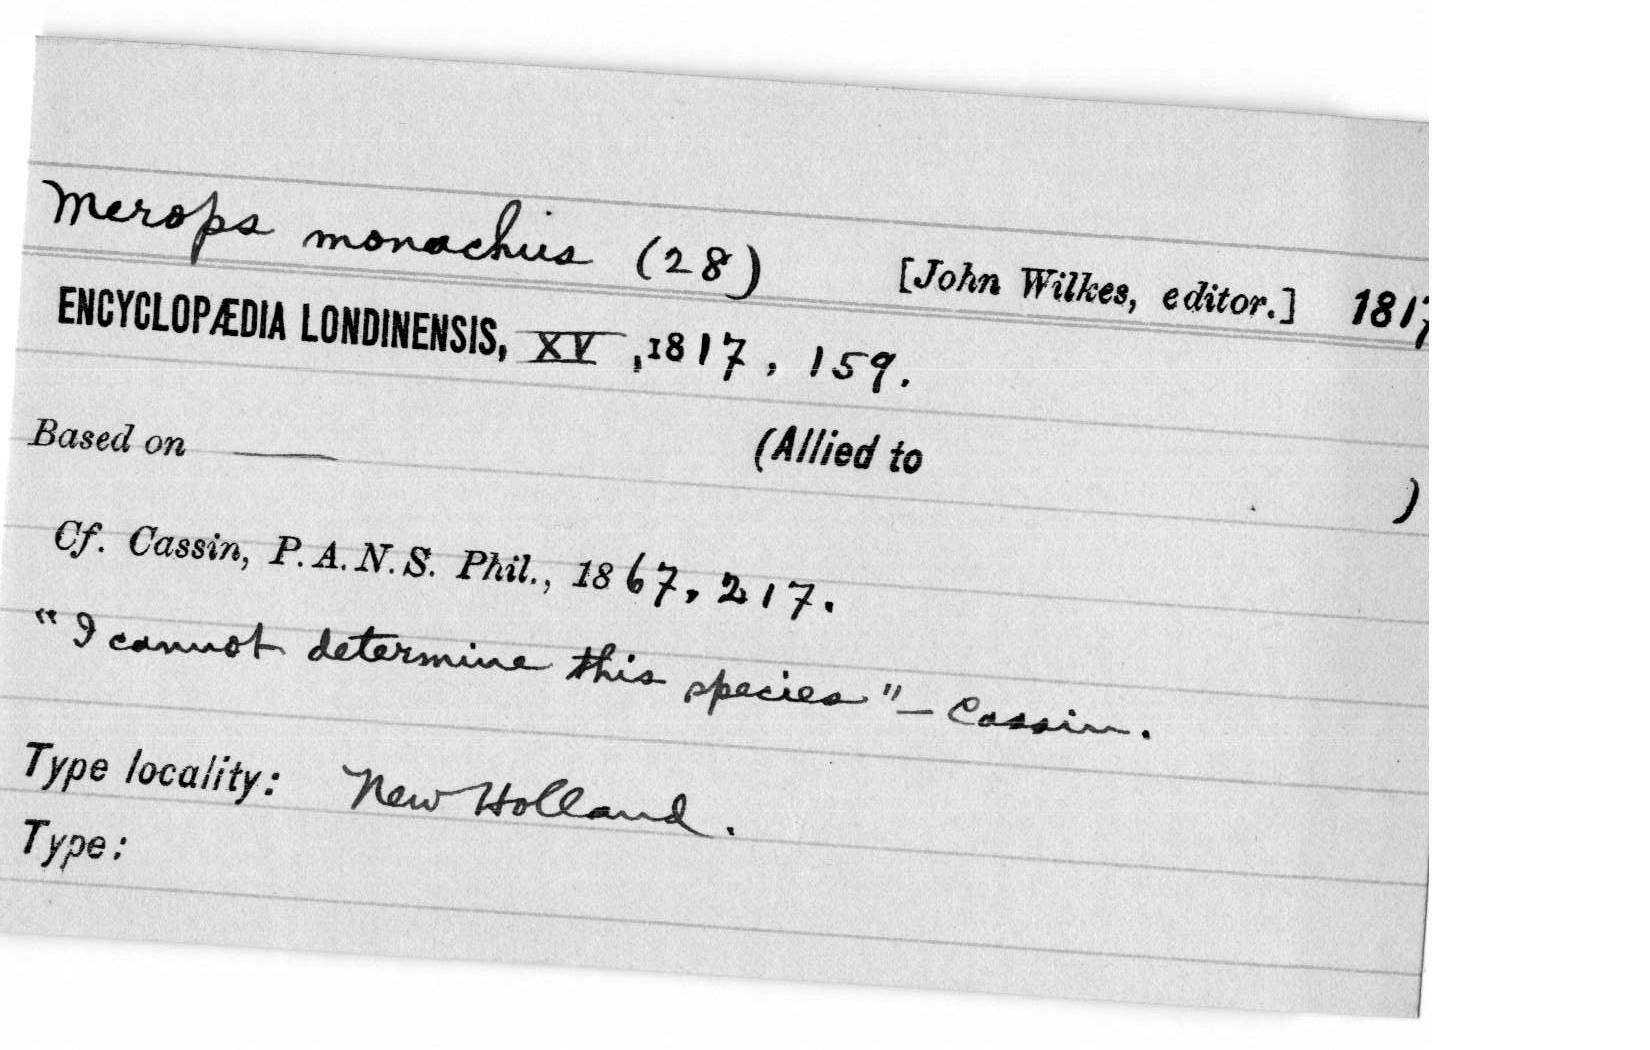 Merops monachus (28) [John Wilkes, editor.] 1817
ENCYCLOPÆDIA LONDINENSIS, XV, 1817, 159.
Based on —— (Allied to )
Cf. Cassin, P. A. N. S. Phil., 1867, 217.
"I cannot determine this species" — Cassin.
Type locality: New Holland.
Type: